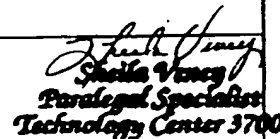 Sheila Viney
Sheila Viney
Paralegal Specialist
Technology Center 3700